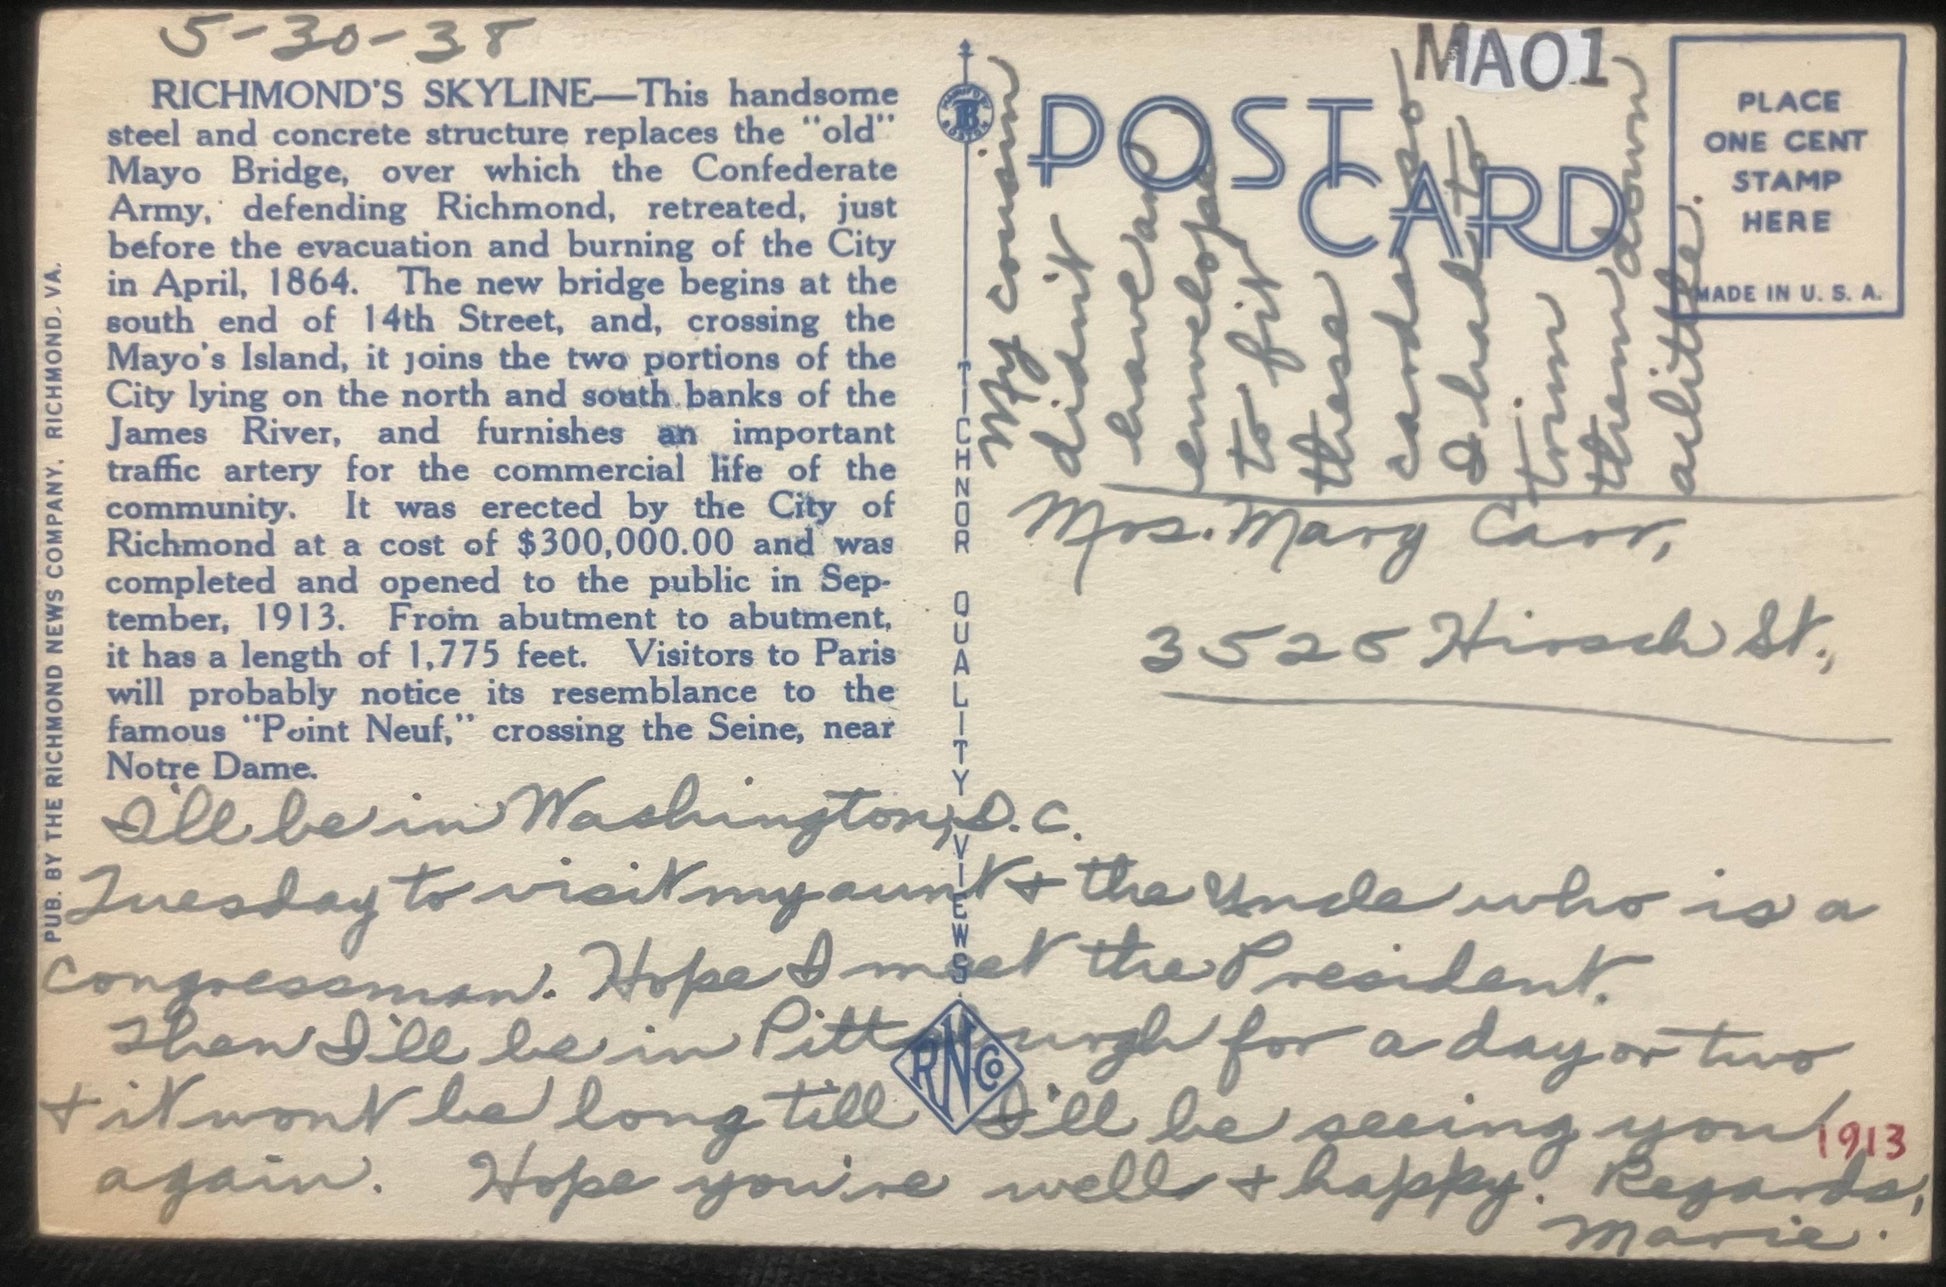 5-30-38
RICHMOND'S SKYLINE—This handsome
steel and concrete structure replaces the "old"
Mayo Bridge, over which the Confederate
Army, defending Richmond, retreated, just
before the evacuation and burning of the City
in April, 1864. The new bridge begins at the
south end of 14th Street, and, crossing the
Mayo's Island, it joins the two portions of the
City lying on the north and south banks of the
James River, and furnishes an important
traffic artery for the commercial life of the
community. It was erected by the City of
Richmond at a cost of $300,000.00 and was
completed and opened to the public in Sep-
tember, 1913. From abutment to abutment,
it has a length of 1,775 feet. Visitors to Paris
will probably notice its resemblance to the
famous "Point Neuf," crossing the Seine, near
Notre Dame.
PUB. BY THE RICHMOND NEWS COMPANY, RICHMOND, VA.
TICHNOR QUALITY VIEWS
POST
CARD
MA01
PLACE
ONE CENT
STAMP
HERE
MADE IN U. S. A.
My cousin
didn't
have an
envelope
to fit
these
cards so
I had to
trim
them down
a little.
Mrs. Mary Carr,
3525 Hirsch St.,
I'll be in Washington, D.C.
Tuesday to visit my aunt + the Uncle who is a
congressman. Hope I meet the President.
Then I'll be in Pittsburgh for a day or two
+ it wont be long till I'll be seeing you
again. Hope you're well + happy. Regards,
Marie.
RNCo
1913